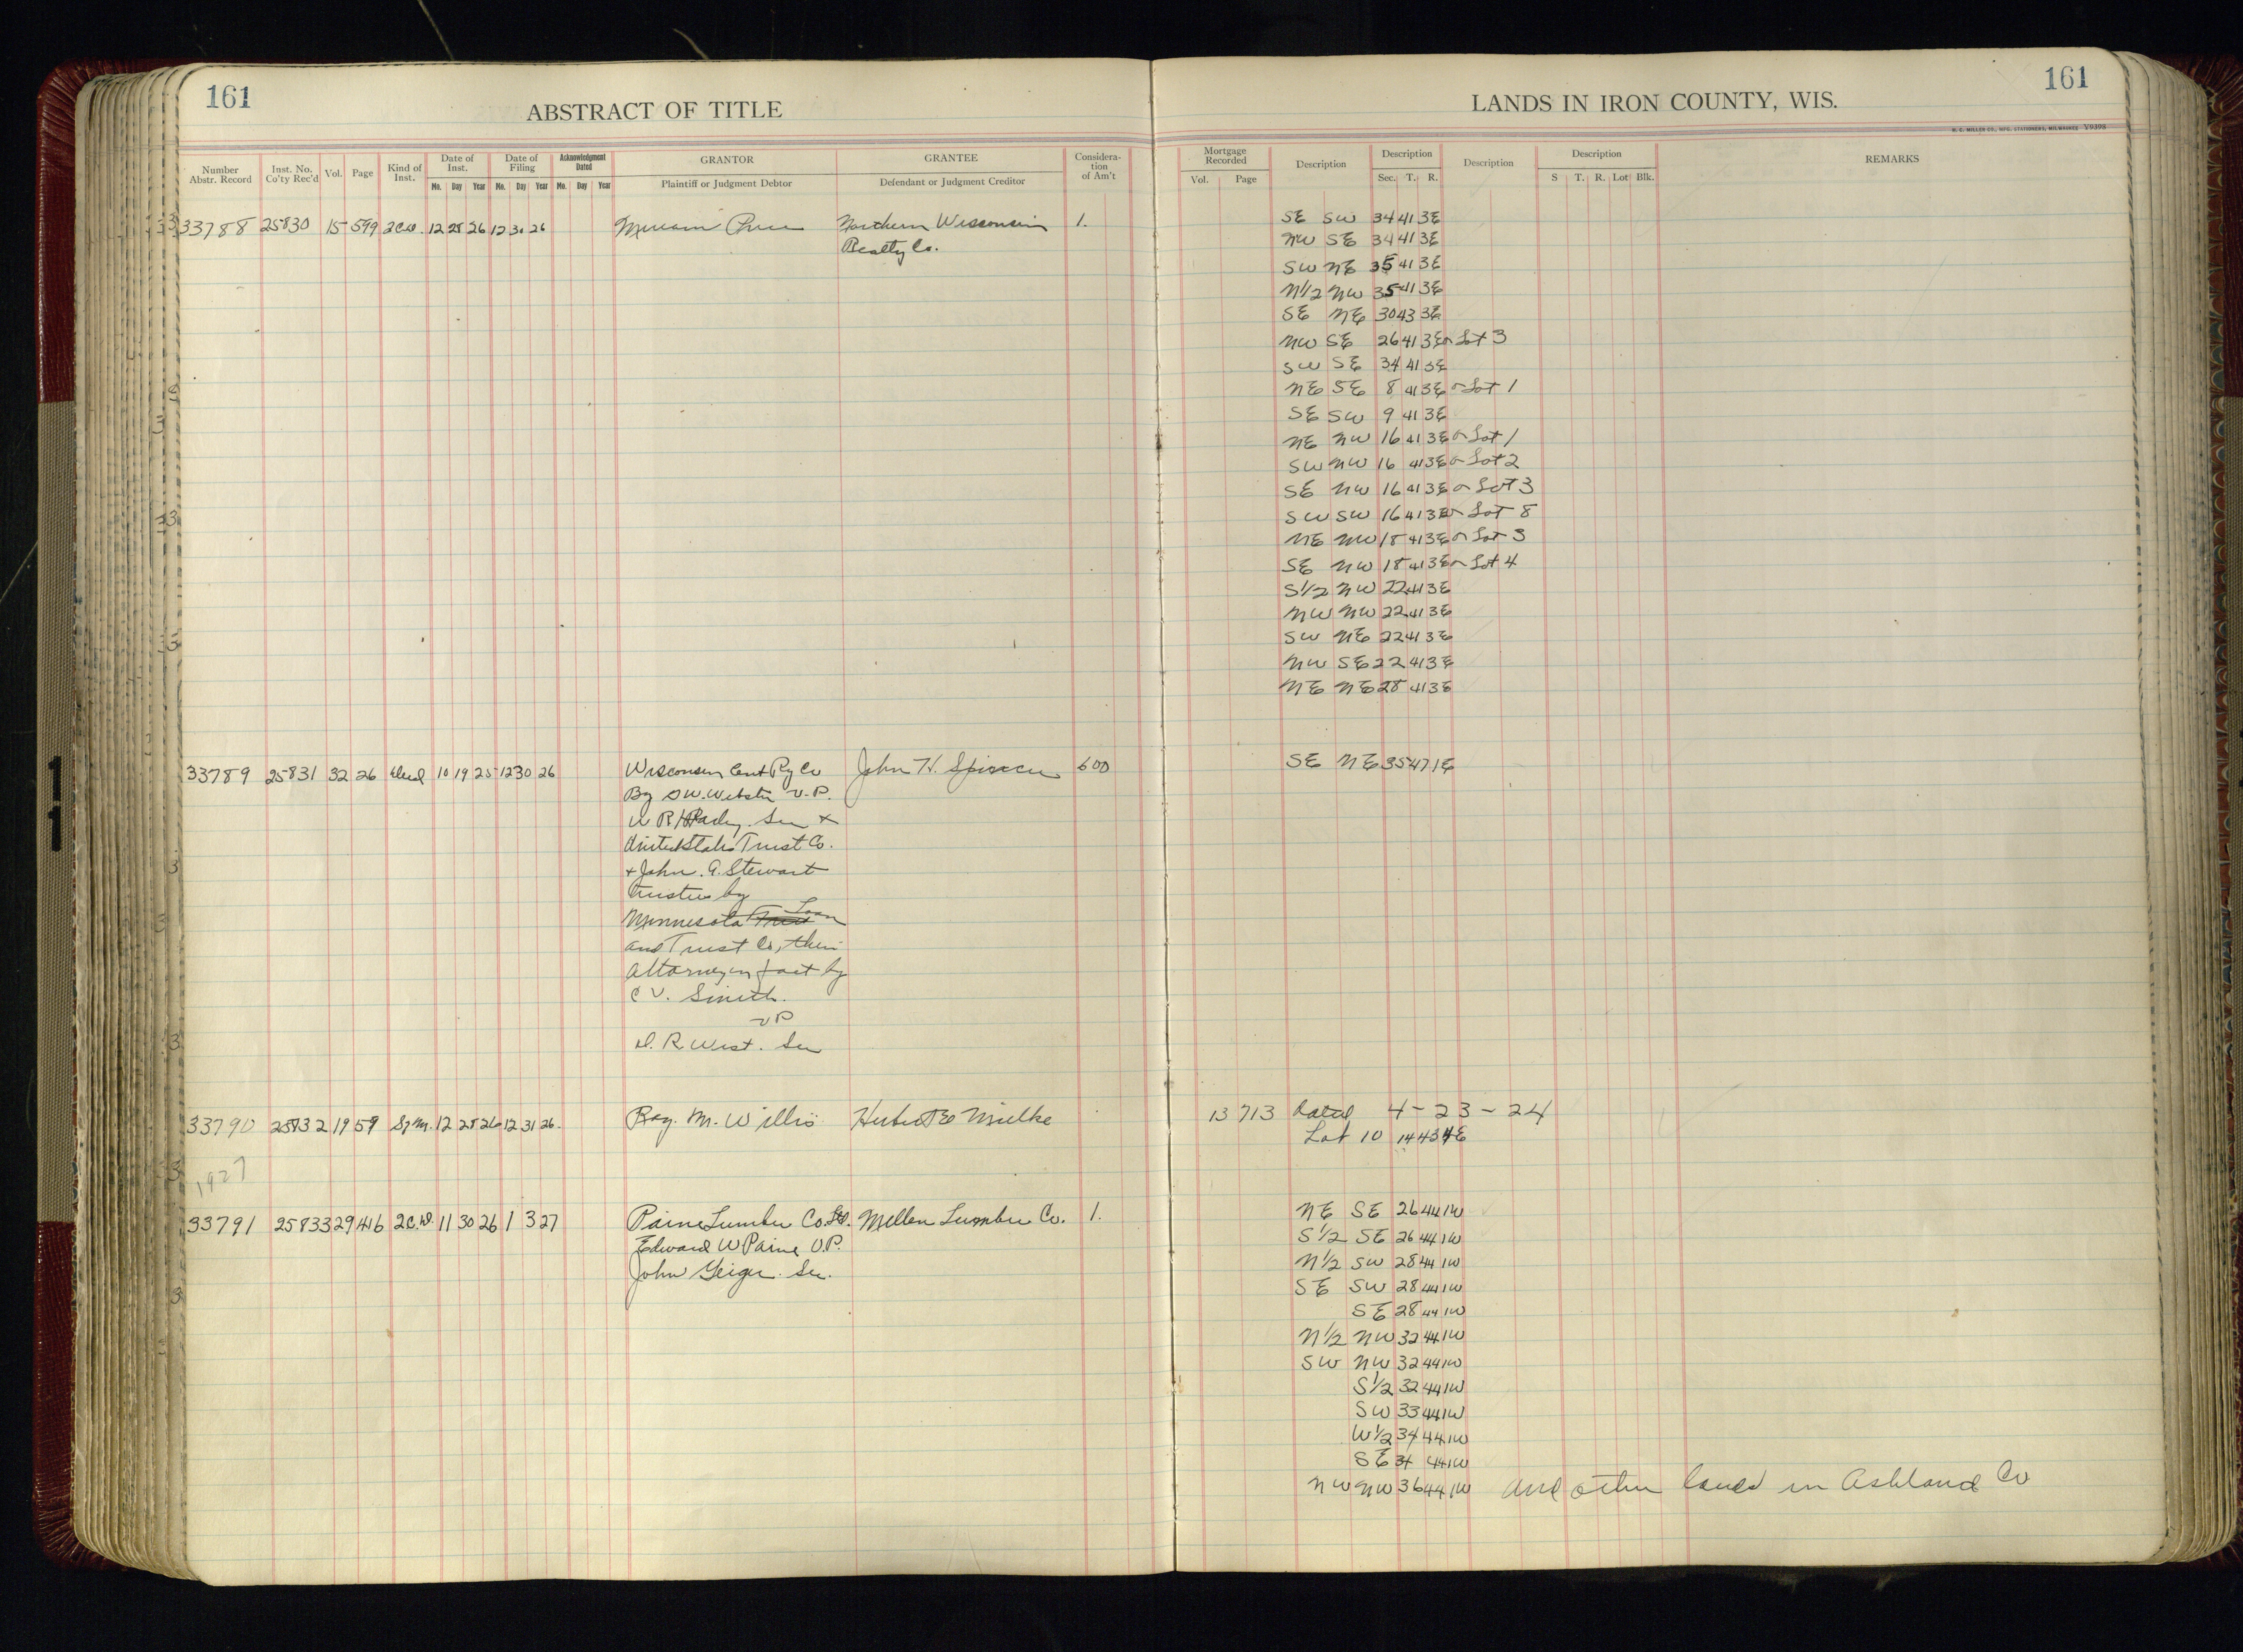 161
ABSTRACT OF TITLE
LANDS IN IRON COUNTY, WIS.
161
H. C. MILLER CO., MFG. STATIONERS, MILWAUKEE Y9398
Number Abstr. Record
Inst. No. Co'ty Rec'd
Vol.
Page
Kind of Inst.
Date of Inst.
Mo. Day Year
Date of Filing
Mo. Day Year
Acknowledgment Dated
Mo. Day Year
GRANTOR
Plaintiff or Judgment Debtor
GRANTEE
Defendant or Judgment Creditor
Considera-tion of Am't
Mortgage Recorded
Vol. Page
Description
Description
Sec. T. R.
Description
Description
S T. R. Lot Blk.
REMARKS
33788 25830 15 599 2CD. 12 28 26 12 30 26 Northern Wisconsin 1. SE SW 34 41 3E
Realty Co. NW SE 34 41 3E
SW NE 35 41 3E
N1/2 NW 35 41 3E
SE NE 30 43 3E
NW SE 26 41 3E or Lot 3
SW SE 34 41 3E
NE SE 8 41 3E or Lot 1
SE SW 9 41 3E
NE NW 16 41 3E or Lot 1
SW NW 16 41 3E or Lot 2
SE NW 16 41 3E or Lot 3
SW SW 16 41 3E or Lot 8
NE NW 18 41 3E or Lot 3
SE NW 18 41 3E or Lot 4
S1/2 NW 22 41 3E
NW NW 22 41 3E
SW NE 22 41 3E
NW SE 22 41 3E
NE NE 28 41 3E
33789 25831 32 26 Deed 10 19 25 12 30 26 Wisconsin Cent Ry Co John H. Spencer 600 SE NE 35 47 1E
By W. Webster V.P.
W R Sec +
United States Trust Co.
+ John A. Stewart
trustees by
Minnesota Trust Loan
and Trust Co, their
attorney in fact by
C V. Smith.
VP
D. R. West. Sec
33790 25832 19 59 S.M. 12 28 26 12 31 26. Ray. M. Willis Hubert E Mielke 13 713 Dated 4-23-24
Lot 10 14 43 4E
1927
33791 25833 29 416 2C.D. 11 30 26 1 3 27 Paine Lumber Co. Ltd. Mellen Lumber Co. 1. NE SE 26 44 1W
Edward W Paine V.P. S1/2 SE 26 44 1W
John Geiger. Sec. N1/2 SW 28 44 1W
SE SW 28 44 1W
SE 28 44 1W
N1/2 NW 32 44 1W
SW NW 32 44 1W
S1/2 32 44 1W
SW 33 44 1W
W1/2 34 44 1W
SE 34 44 1W
NW NW 36 44 1W and other lands in Ashland Co